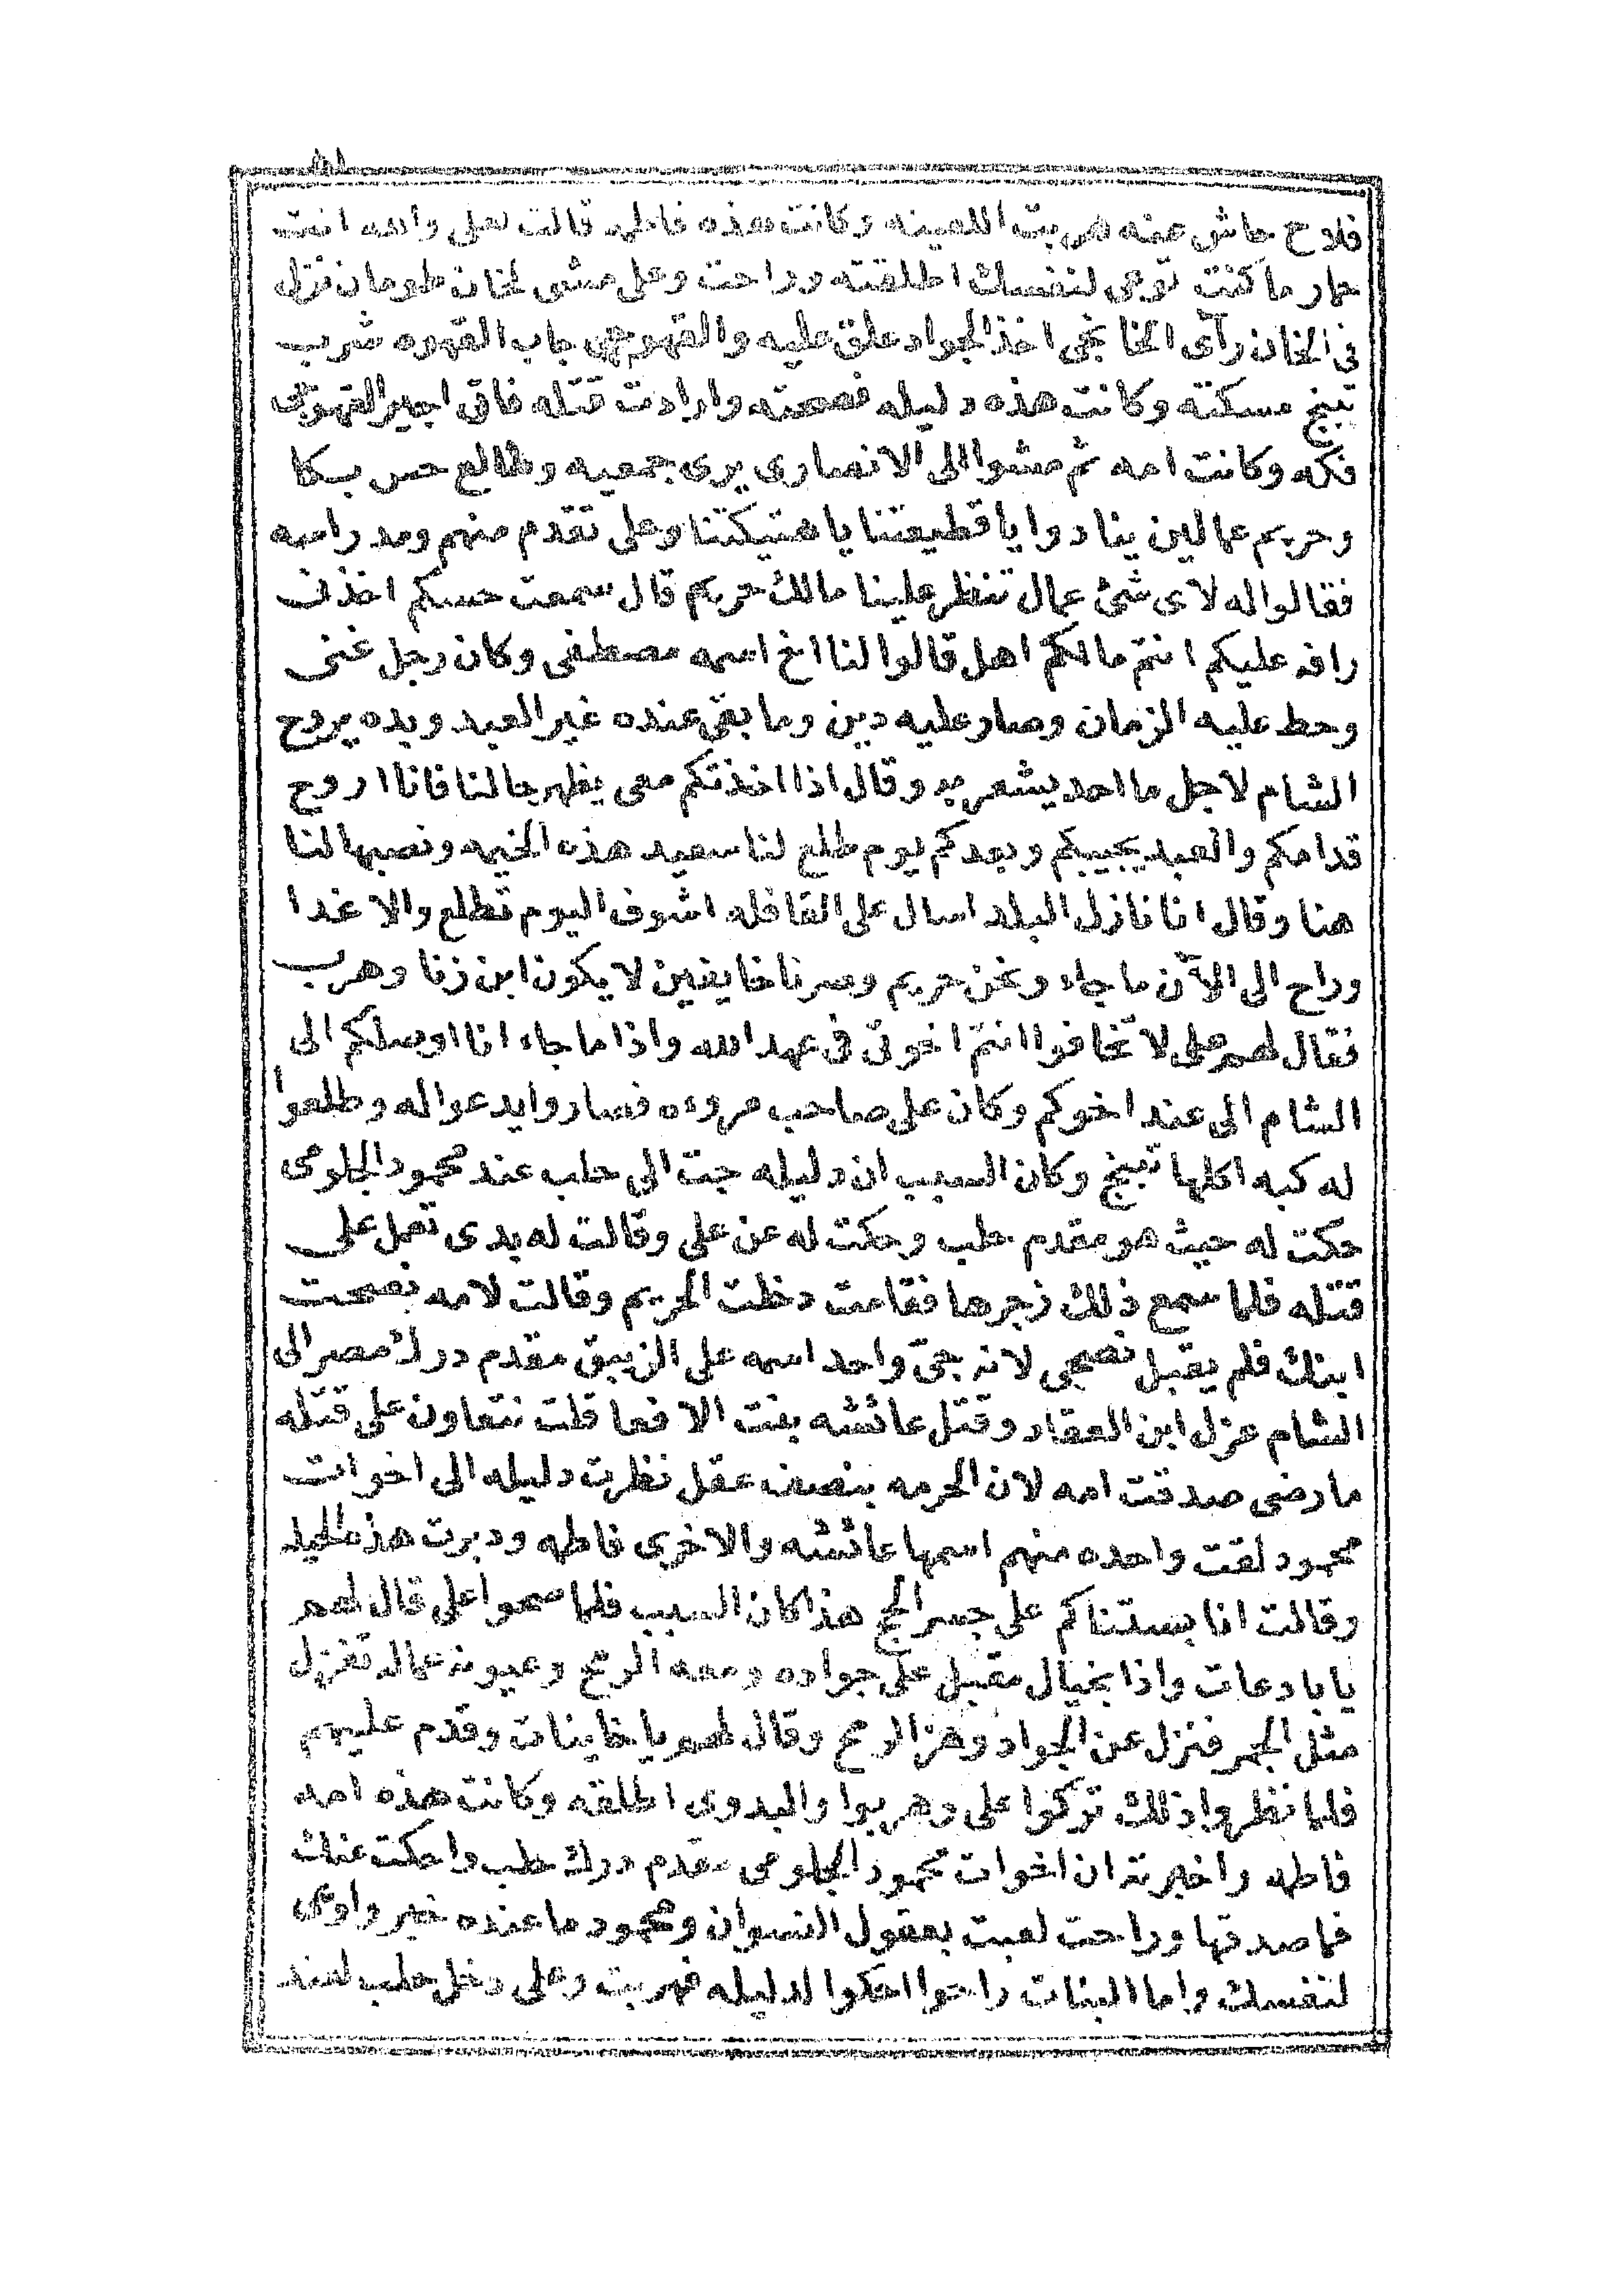 فلاح حاش عنه هربت اللعينه وكانت هذه فاطمه قالت لعلي والله انت
حمار ما كنت توعى لنفسك اطلقته وراحت وعلى مشى لخان طومان نزل
فى الخان رآى الخانجى اخذ الجواد علق عليه والقهوجى جاب القهوه شرب
تبنج مسكته وكانت هذه دليله فصحته وارادت قتله فاق اجير القهوجى
فكه وكانت امه ثم مشوا الى الانصارى يرى جمعيه وطالع حس بكا
وحريم عمالين ينادوا يا قطيعتنا يا هتيكتنا وعلى تقدم منهم ومد راسه
فقالوا له لاى شئ عمال تنظر علينا مالك حريم قال سمعت حسكم اخذنى
رافه عليكم انتم مالكم اهل قالوا لنا اخ اسمه مصطفى وكان رجل غنى
وحط عليه الزمان وصار عليه دين وما بقى عنده غير العبد وبده يروح
الشام لاجل ما احد يشعر به وقال اذا اخذتكم معى يظهر حالنا فانا اروح
قدامكم والعبد يجيبكم وبعدكم يوم طلع لنا سعيد هذه الخيمه ونصبها لنا
هنا وقال انا نازل البلد اسال على القافله اشوف اليوم تطلع والا غدا
وراح الى الآن ما جاء ونحن حريم وصرنا خايفين لا يكون ابن زنا وهرب
فقال لهم على لا تخافوا انتم اخوتى فى عهد الله واذا ما جاء انا اوصلكم الى
الشام الى عند اخوكم وكان على صاحب مروءه فصاروا يدعوا له وطلعوا
له كبه اكلها تبنج وكان السبب ان دليله جت الى حلب عند محمود الجلومى
حكت له حيث هو مقدم حلب وحكت له عن على وقالت له بدى تعمل على
قتله فلما سمع ذلك زجرها فقامت دخلت الحريم وقالت لامه نصحت
ابنك فلم يقبل نصحى لانه جى واحد اسمه على الزيبق مقدم درك مصر الى
الشام عزل ابن العقاد وقتل عائشه بنت الافعا قلت نتعاون على قتله
ما رضى صدقت امه لان الحرمه بنصف عقل نظرت دليله الى اخوات
محمود لقت واحده منهم اسمها عائشه والاخرى فاطمه ودبرت هذه الحيله
وقالت انا بستناكم على جسر الحج هذا كان السبب فلما صحوا على قال لهم
يا بادعات واذا بخيال مقبل على جواده ومعه الرمح وعيونه عماله تغزل
مثل الجمر فنزل عن الجواد وهز الرمح وقال لهم يا خاينات وقدم عليهم
فلما نظروا ذلك تركوا على وهربوا والبدوى اطلقه وكانت هذه امه
فاطمه واخبرته ان اخوات محمود الجلومى مقدم درك حلب واحكت عنك
فما صدقها وراحت لعبت بعقول النسوان ومحمود ما عنده خبر واوعى
لنفسك واما البنات راحوا احكوا لدليله فهربت وعلى دخل حلب لعند